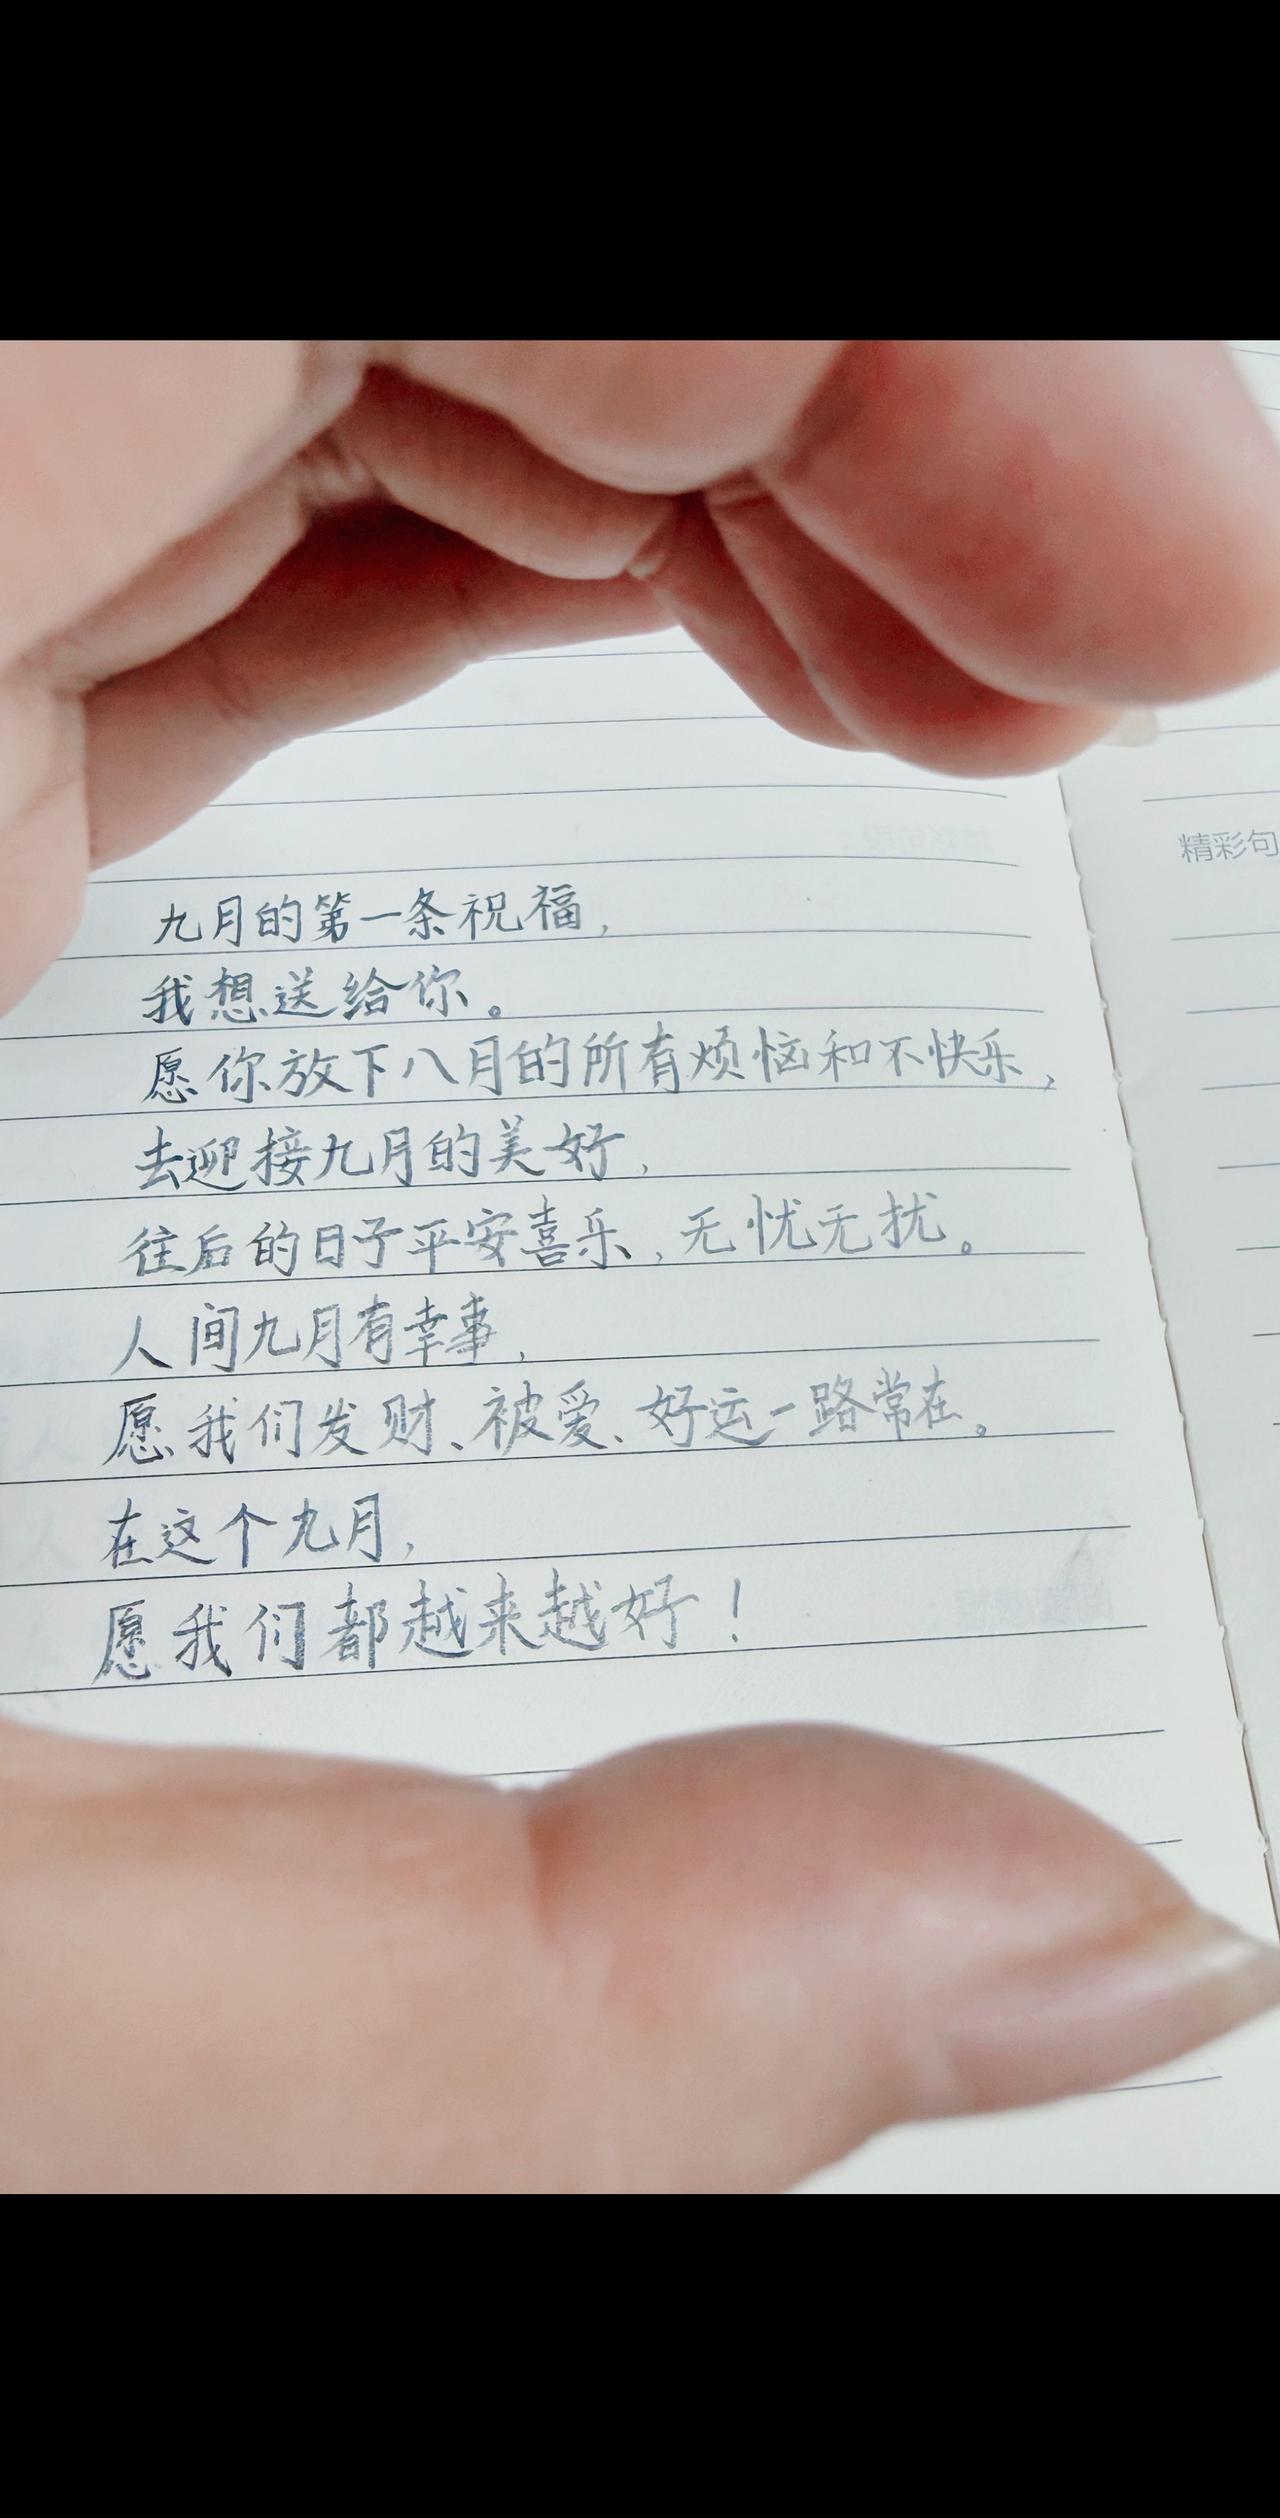 精彩句
九月的第一条祝福,
我想送给你。
愿你放下八月的所有烦恼和不快乐,
去迎接九月的美好,
往后的日子平安喜乐,无忧无扰。
人间九月有幸事,
愿我们发财、被爱、好运一路常在。
在这个九月,
愿我们都越来越好！